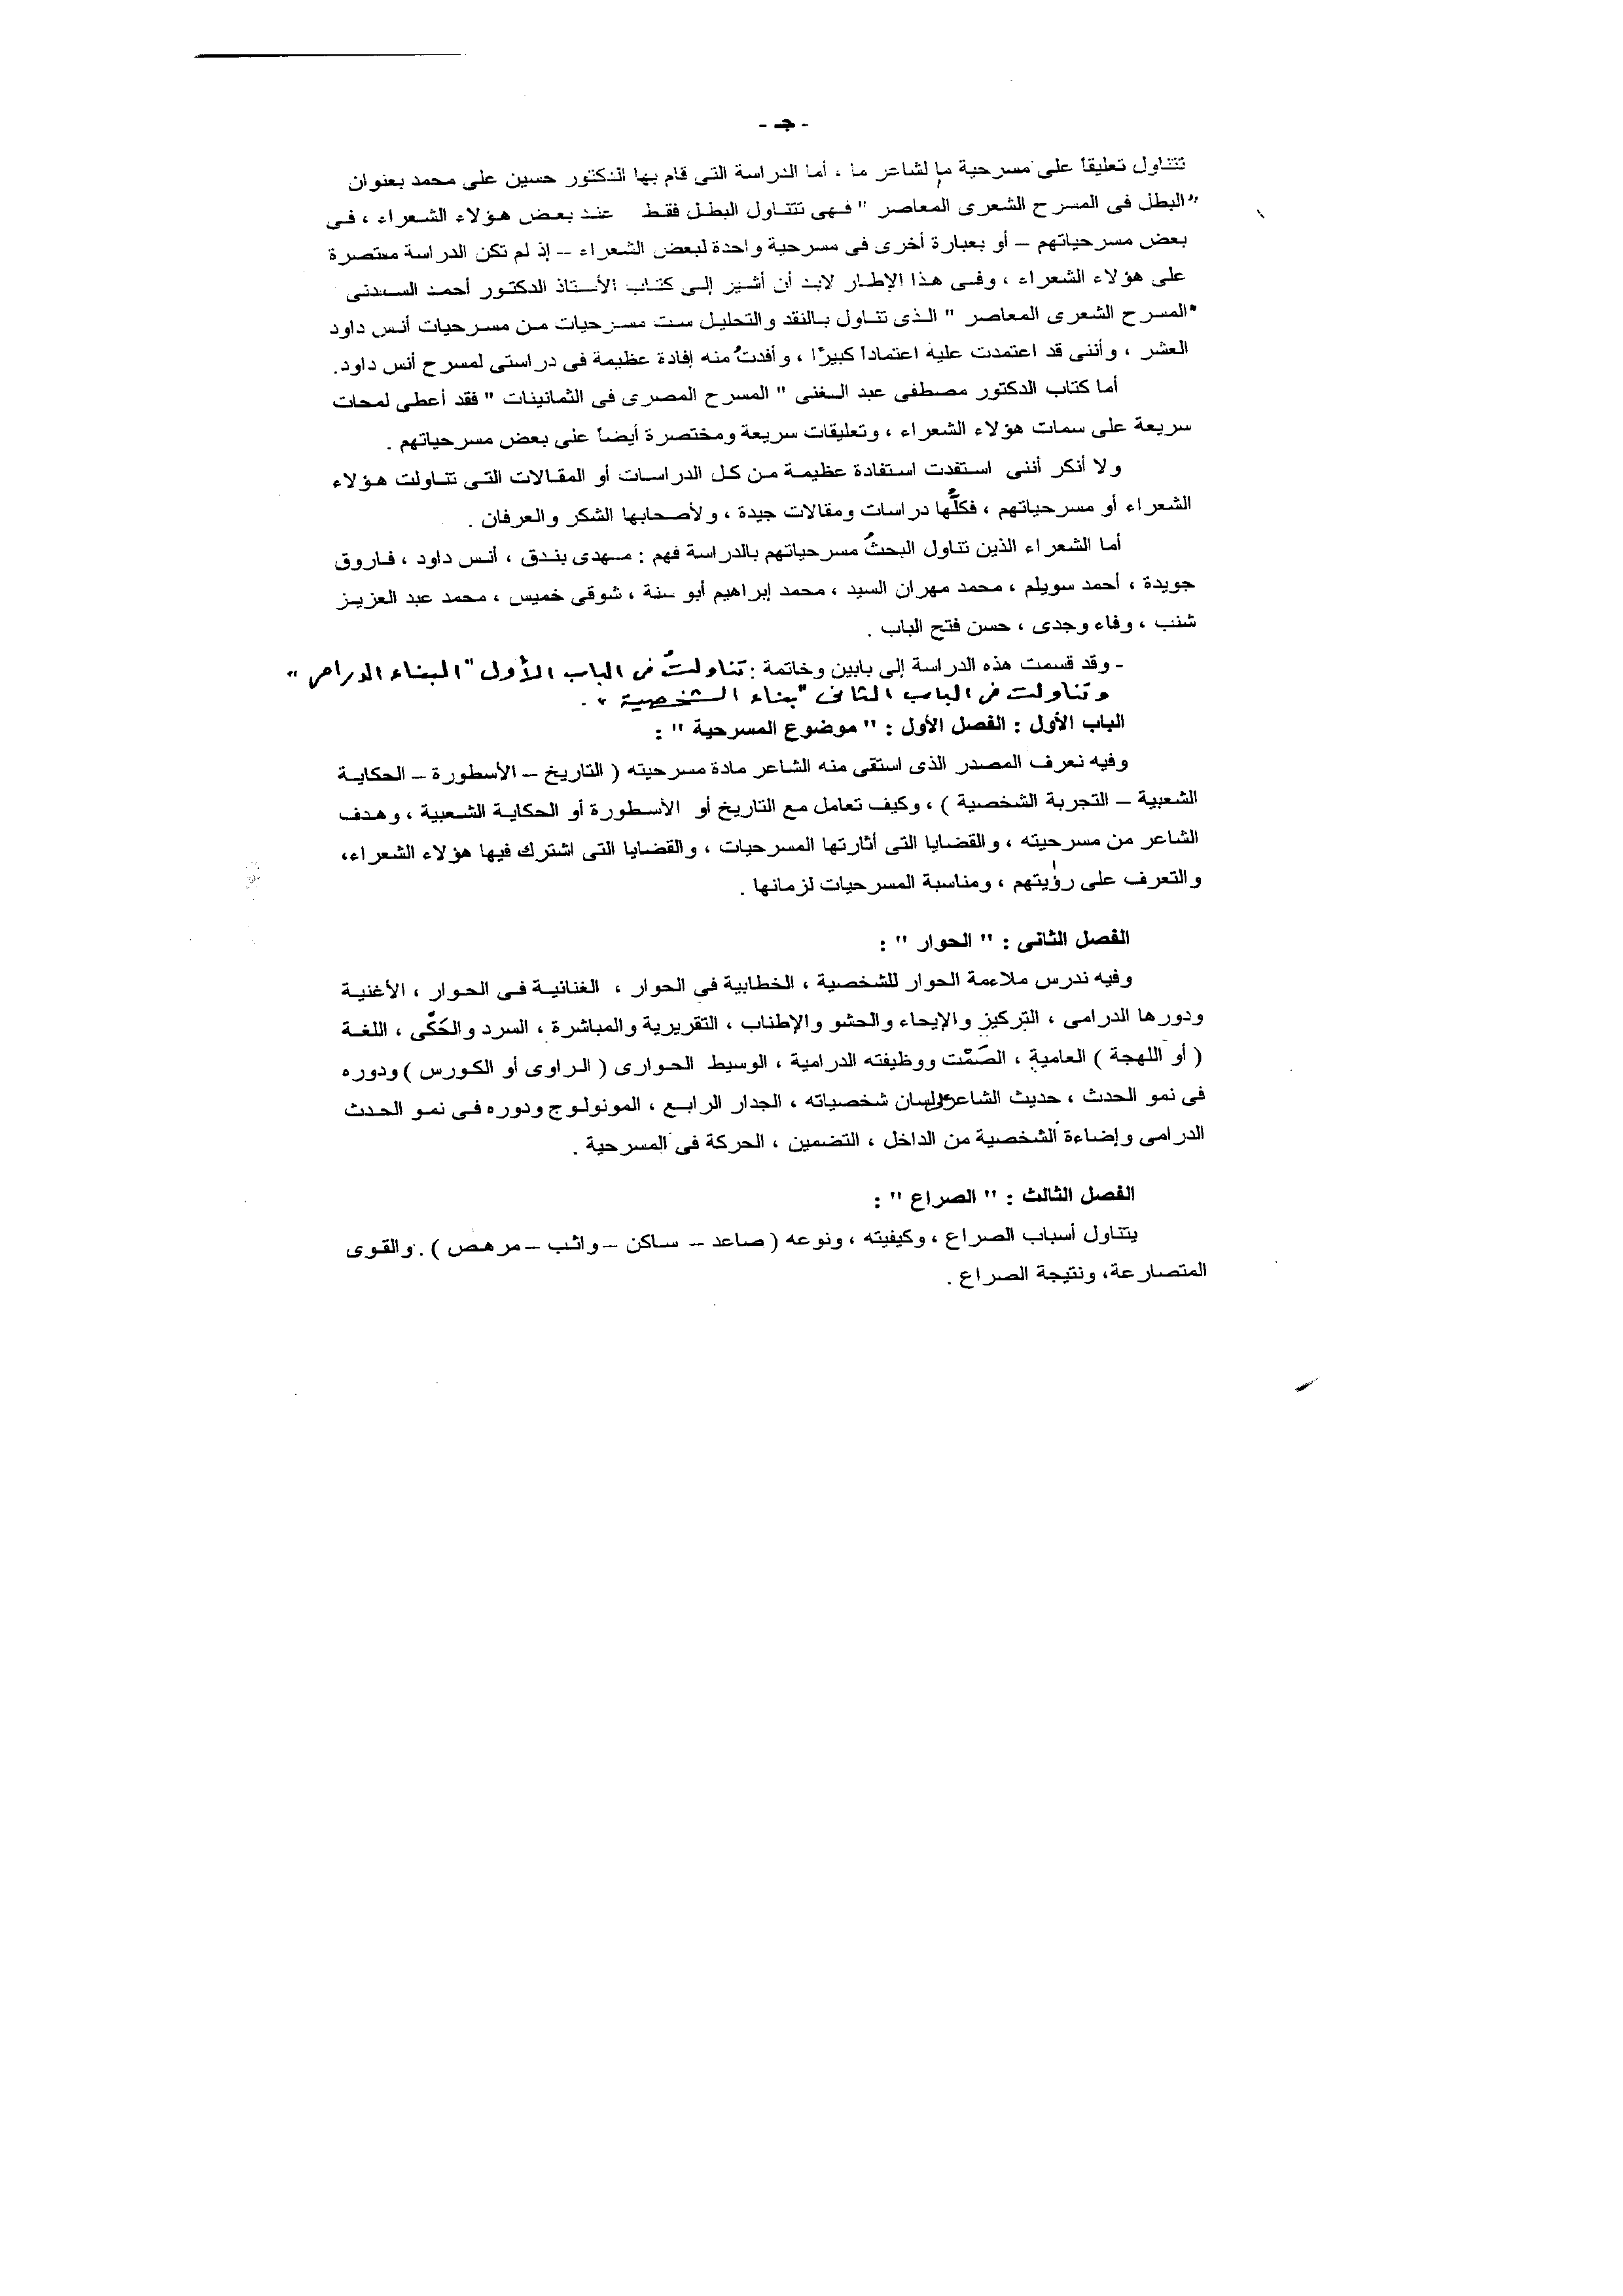 - جـ -
تتناول تعليقاً على مسرحية ما لشاعر ما ، أما الدراسة التى قام بها الدكتور حسين على محمد بعنوان
"البطل فى المسرح الشعرى المعاصر " فهى تتناول البطل فقط عند بعض هؤلاء الشعراء ، فى
بعض مسرحياتهم – أو بعبارة أخرى فى مسرحية واحدة لبعض الشعراء -- إذ لم تكن الدراسة مقتصرة
على هؤلاء الشعراء ، وفى هذا الإطار لابد أن أشير إلى كتاب الأستاذ الدكتور أحمد السعدنى
"المسرح الشعرى المعاصر " الذى تناول بالنقد والتحليل ست مسرحيات من مسرحيات أنس داود
العشر ، وأننى قد اعتمدت عليه اعتماداً كبيرًا ، وأفدتُ منه إفادة عظيمة فى دراستى لمسرح أنس داود.
أما كتاب الدكتور مصطفى عبد الغنى " المسرح المصرى فى الثمانينات " فقد أعطى لمحات
سريعة على سمات هؤلاء الشعراء ، وتعليقات سريعة ومختصرة أيضاً على بعض مسرحياتهم .
ولا أنكر أننى استفدت استفادة عظيمة من كل الدراسات أو المقالات التى تناولت هؤلاء
الشعراء أو مسرحياتهم ، فكلُّها دراسات ومقالات جيدة ، ولأصحابها الشكر والعرفان .
أما الشعراء الذين تناول البحثُ مسرحياتهم بالدراسة فهم : مهدى بندق ، أنس داود ، فاروق
جويدة ، أحمد سويلم ، محمد مهران السيد ، محمد إبراهيم أبو سنة ، شوقى خميس ، محمد عبد العزيز
شنب ، وفاء وجدى ، حسن فتح الباب .
- وقد قسمت هذه الدراسة إلى بابين وخاتمة : تناولتُ فى الباب الأول "البناء الدرامى"
وتناولت فى الباب الثانى "بناء الشخصية" .
الباب الأول : الفصل الأول : " موضوع المسرحية " :
وفيه نعرف المصدر الذى استقى منه الشاعر مادة مسرحيته ( التاريخ – الأسطورة – الحكاية
الشعبية – التجربة الشخصية ) ، وكيف تعامل مع التاريخ أو الأسطورة أو الحكاية الشعبية ، وهدف
الشاعر من مسرحيته ، والقضايا التى أثارتها المسرحيات ، والقضايا التى اشترك فيها هؤلاء الشعراء،
والتعرف على رؤيتهم ، ومناسبة المسرحيات لزمانها .
الفصل الثانى : " الحوار " :
وفيه ندرس ملاءمة الحوار للشخصية ، الخطابية فى الحوار ، الغنائية فى الحوار ، الأغنية
ودورها الدرامى ، التركيز والإيحاء والحشو والإطناب ، التقريرية والمباشرة ، السرد والحَكْى ، اللغة
( أو اللهجة ) العامية ، الصَمْت ووظيفته الدرامية ، الوسيط الحوارى ( الراوى أو الكورس ) ودوره
فى نمو الحدث ، حديث الشاعر بلسان شخصياته ، الجدار الرابع ، المونولوج ودوره فى نمو الحدث
الدرامى وإضاءة الشخصية من الداخل ، التضمين ، الحركة فى المسرحية .
الفصل الثالث : " الصراع " :
يتناول أسباب الصراع ، وكيفيته ، ونوعه ( صاعد – ساكن – واثب – مرهص ) . والقوى
المتصارعة، ونتيجة الصراع .